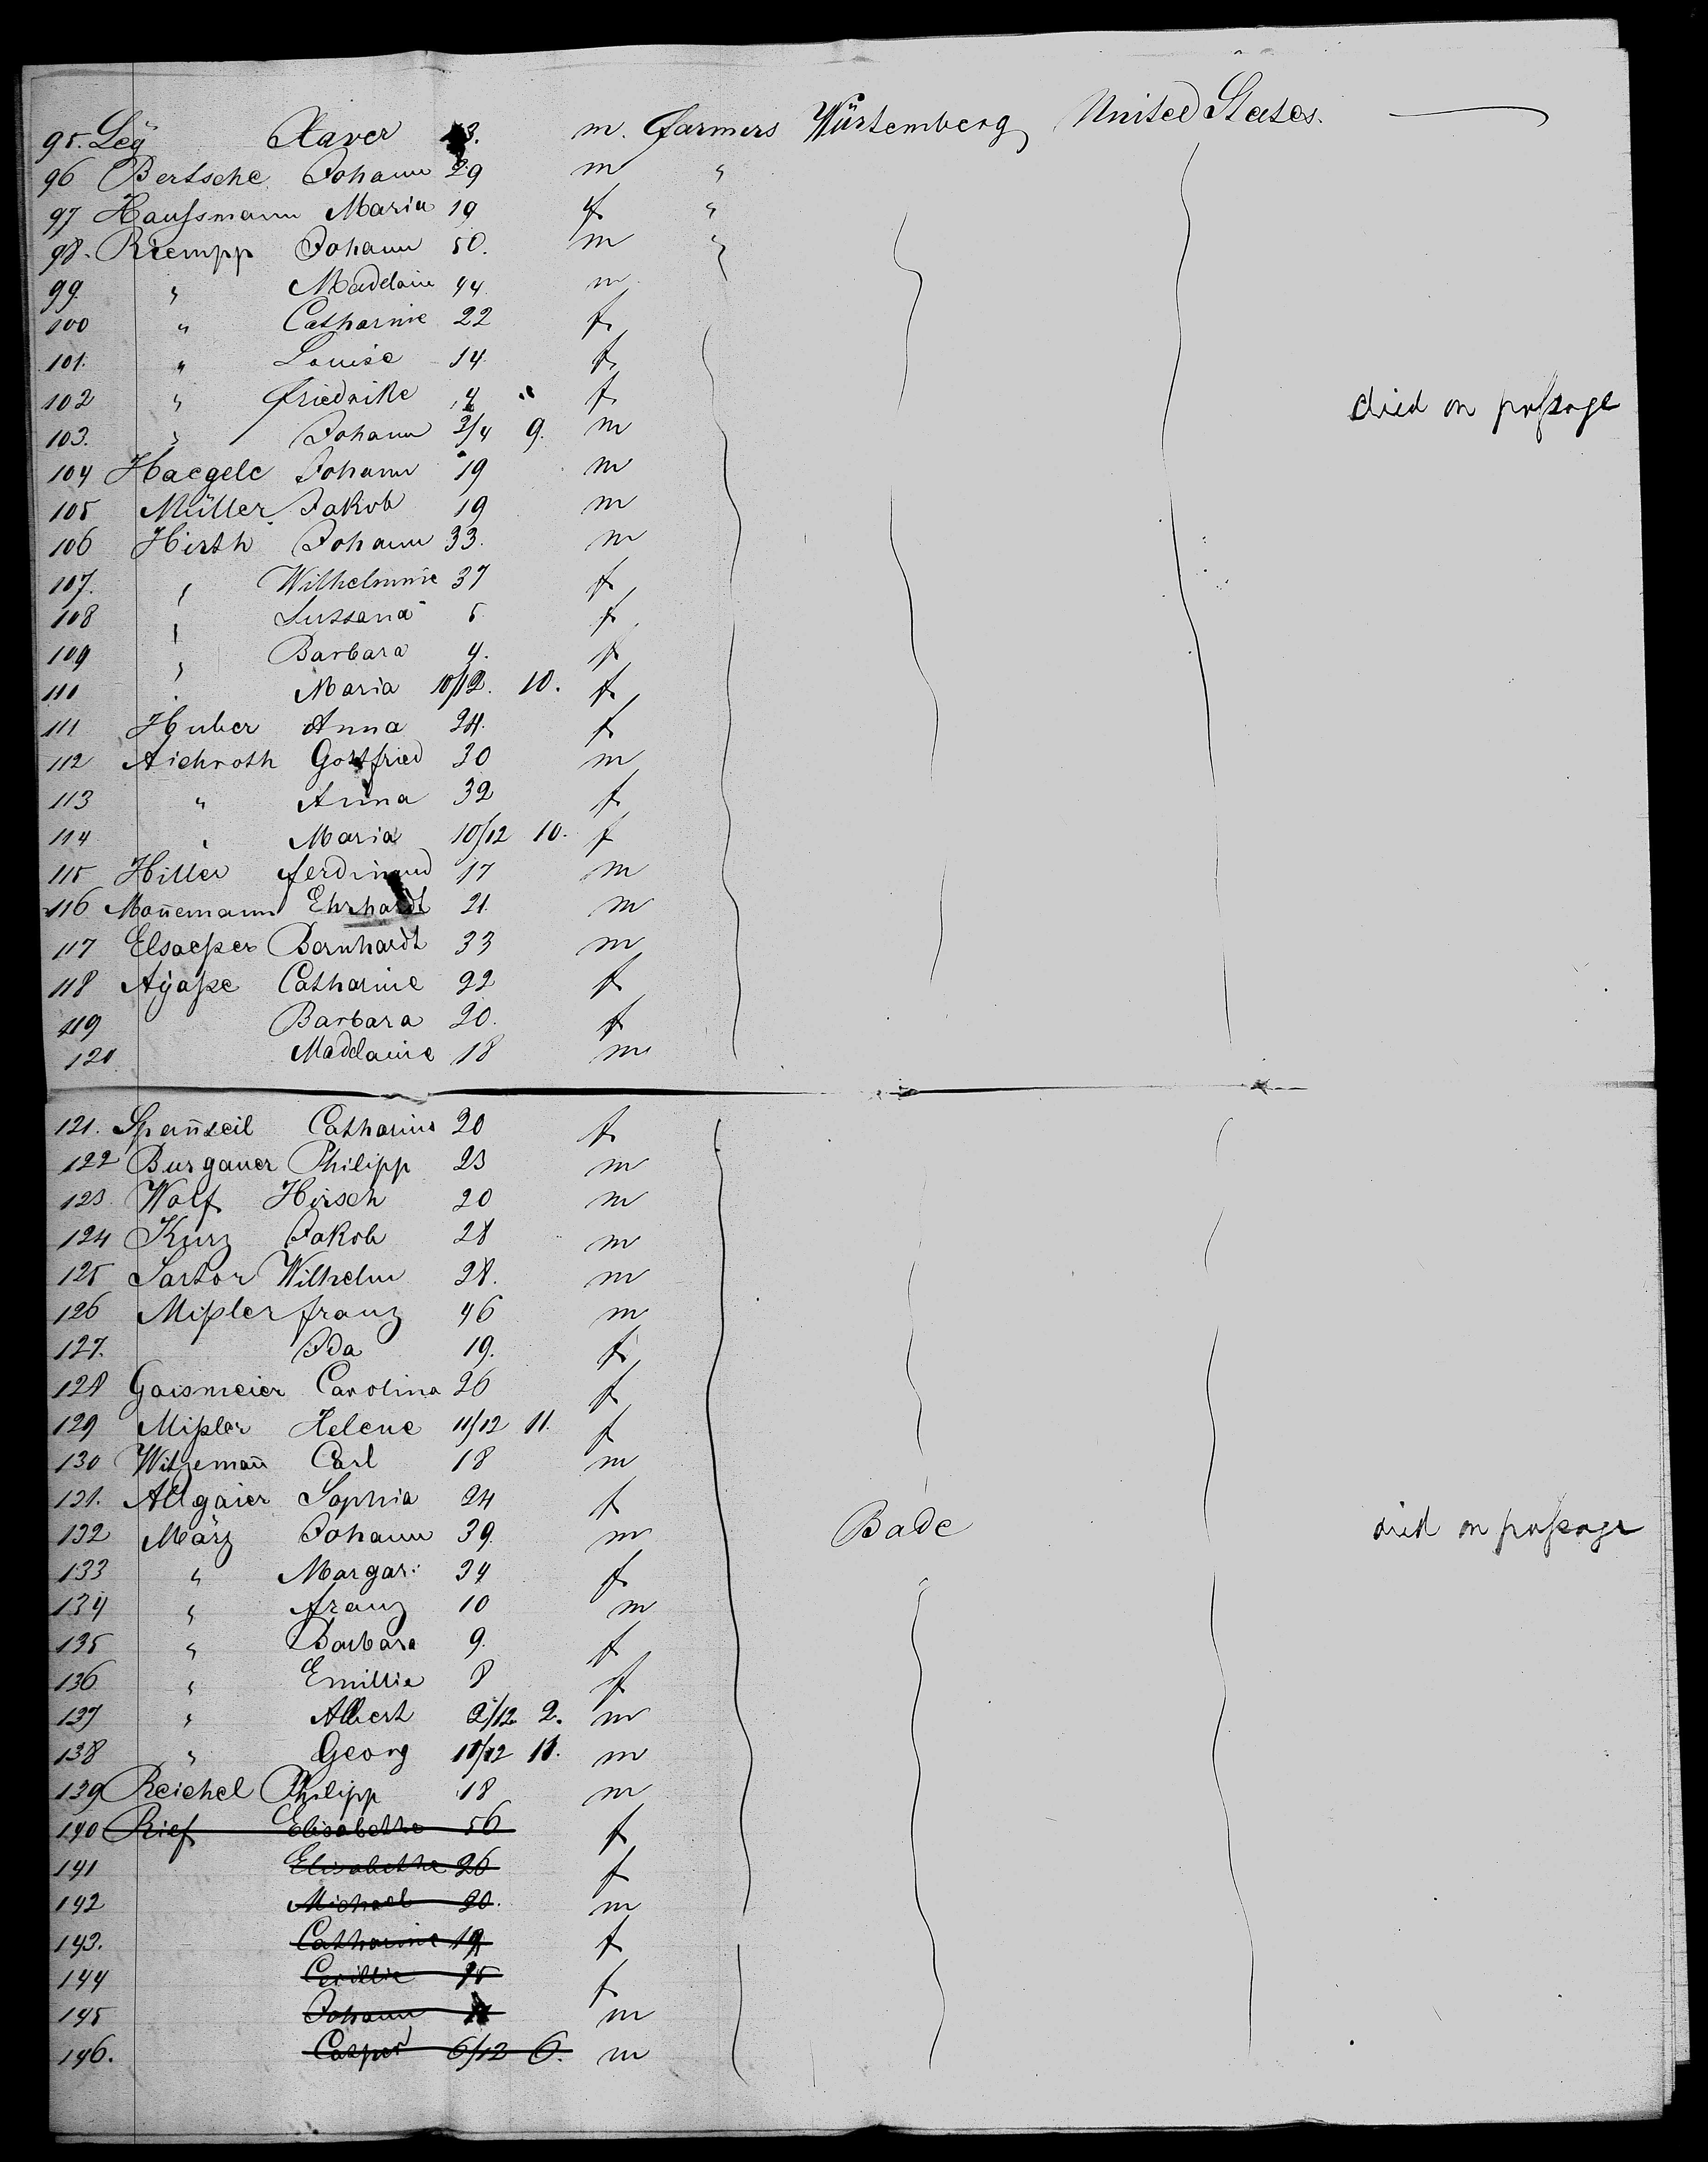 95. Leÿ Xaver 3. m. farmers Würtemberg United States. —
96 Bertsche Johann 29 m "
97 Haußmann Maria 19 f "
98. Riempp Johann 50. m "
99. " Madelain 44. m
100 " Catharine 22 f
101. " Louise 14. f
102 " Friedrike 4 " f died on passage
103. " Johann 3/4 9. m
104 Haegele Johann 19 m
105 Müller Jakob 19 m
106 Hirth Johann 33. m
107. " Wilhelmine 37 f
108 " Sussana 5 f
109 " Barbara 4. f
110 " Maria 10/12. 10. f
111 Huber Anna 24. f
112 Aichroth Gottfried 30 m
113 " Anna 32 f
114 " Maria 10/12 10. f
115 Hiller ferdinand 17 m
116 Mañemann Ehrhardt 21. m
117 Elsaeßer Bernhardt 33 m
118 Aÿaße Catharine 22 f
119 Barbara 20. f
120 Madelaine 18 m
121. Spañseil Catharine 20 f
122 Burgauer Philipp 23 m
123. Wolf Hirsch 20 m
124 Kurz Jakob 28 m
125 Sartor Wilhelm 28. m
126 Mißler franz 46 m
127. Ida 19. f
128 Gaismeier Carolina 26 f
129 Mißler Helene 11/12 11. f
130 Witzemañ Carl 18 m
131. Allgaier Sophia 24 f
132 März Johann 39. m Bade died on passage
133 " Margar: 34 f
134 " franz 10 m
135 " Barbara 9. f
136 " Emillie 8 f
137 " Albert 2/12 2. m
138 " Georg 11/12 11. m
139 Reichel Philipp 18 m
140 Rief Elisabethe 56 f
141 Elisabethe 26 f
142 Michael 20. m
143. Catharine 19 f
144 Cecillie 15 f
145 Johann m
146. Casper 6/12 6. m